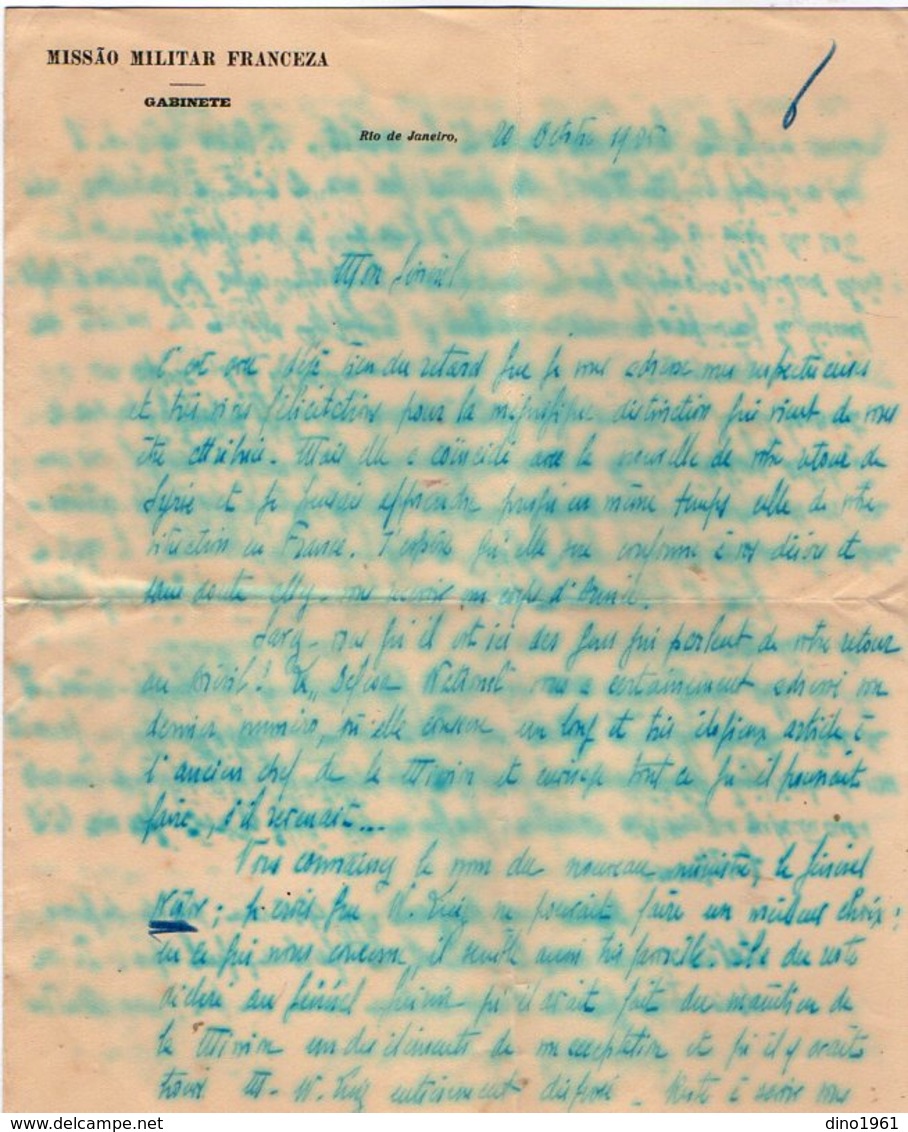 MISSÃO MILITAR FRANCEZA
GABINETE
Rio de Janeiro, 20 Octobre
Mon Général,
C'est avec bien du retard que je vous adresse mes respectueuses
et très vives félicitations pour la magnifique distinction qui vient de vous
être attribuée. Mais elle a coïncidé avec la nouvelle de votre retour de
Syrie et je pensais apprendre presqu'en même temps celle de votre
situation en France. J'espère qu'elle sera conforme à vos désirs et
sans doute allez-vous recevoir un corps d'Armée.
Savez-vous qu'il est ici des gens qui parlent de votre retour
au Brésil! La "Defesa Nacional" vous a certainement adressé son
dernier numéro, où elle consacre un long et très élogieux article à
l'ancien chef de la Mission et envisage tout ce qu'il pourrait
faire, s'il revenait...
Vous connaissez le nom du nouveau ministre, le Général
Nestor; je crois que W. Luiz ne pouvait faire un meilleur choix;
en ce qui nous concerne, il semble aussi très favorable. Il a du reste
déclaré au Général qu'il avait fait du maintien de
la Mission un des éléments de son acceptation et qu'il y avait
trouvé M. W. Luiz entièrement disposé. Reste à savoir vous
dino1961